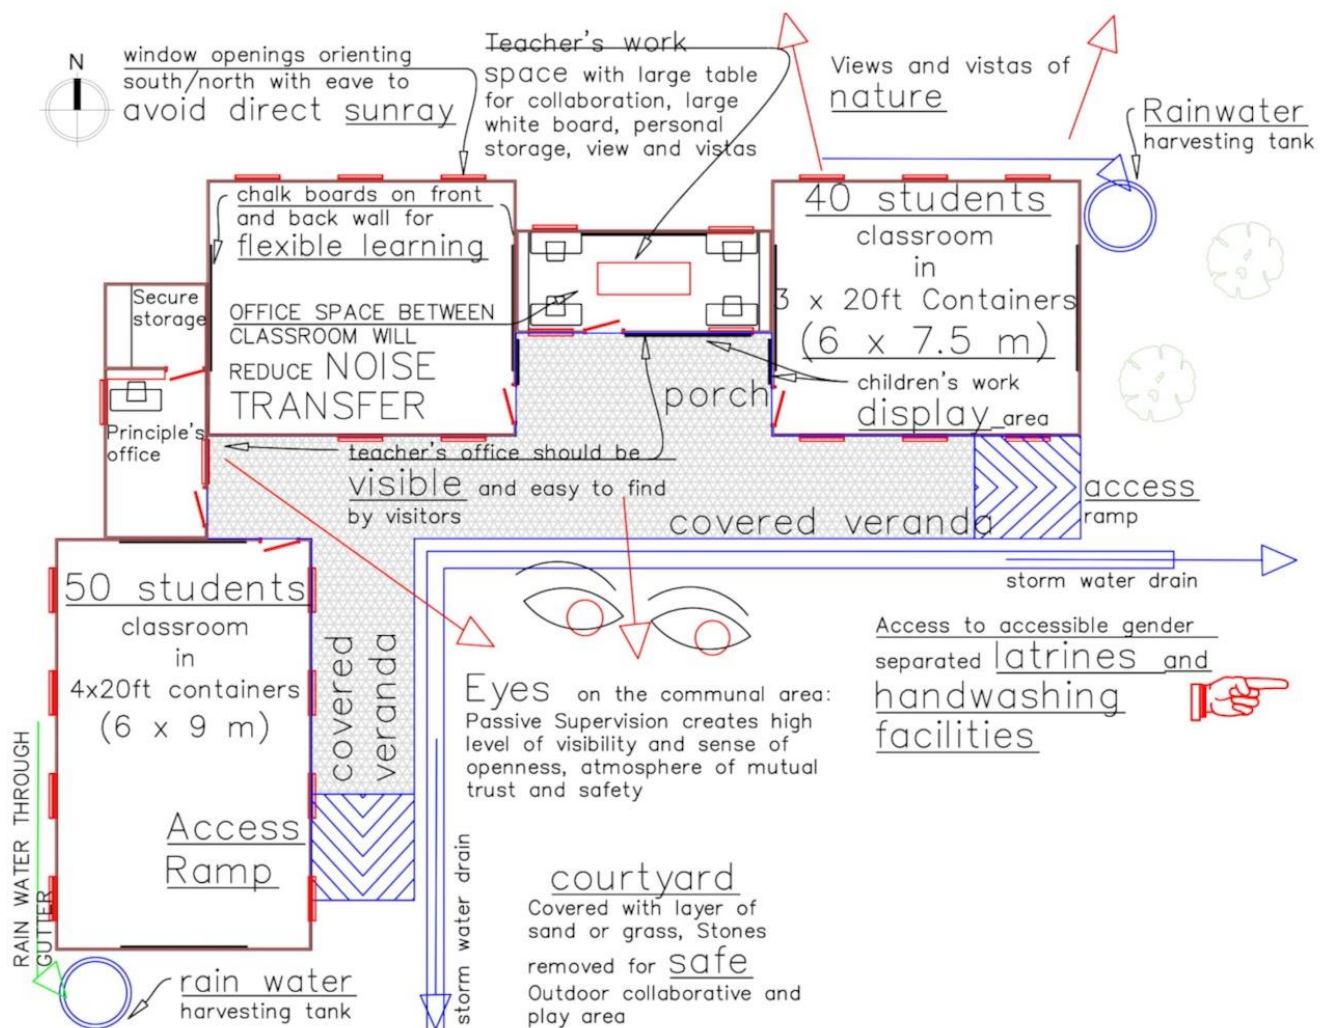 N
window openings orienting
south/north with eave to
avoid direct sunray
Teacher's work
space with large table
for collaboration, large
white board, personal
storage, view and vistas
Views and vistas of
nature
Rainwater
harvesting tank
chalk boards on front
and back wall for
flexible learning
OFFICE SPACE BETWEEN
CLASSROOM WILL
REDUCE NOISE
TRANSFER
Secure
storage
Principle's
office
40 students
classroom
in
3 x 20ft Containers
(6 x 7.5 m)
porch
children's work
display area
teacher's office should be
visible and easy to find
by visitors
covered veranda
access
ramp
storm water drain
50 students
classroom
in
4x20ft containers
(6 x 9 m)
covered
veranda
Access
Ramp
Eyes on the communal area:
Passive Supervision creates high
level of visibility and sense of
openness, atmosphere of mutual
trust and safety
Access to accessible gender
separated latrines and
handwashing
facilities
RAIN WATER THROUGH
GUTTER
rain water
harvesting tank
storm water drain
courtyard
Covered with layer of
sand or grass, Stones
removed for safe
Outdoor collaborative and
play area